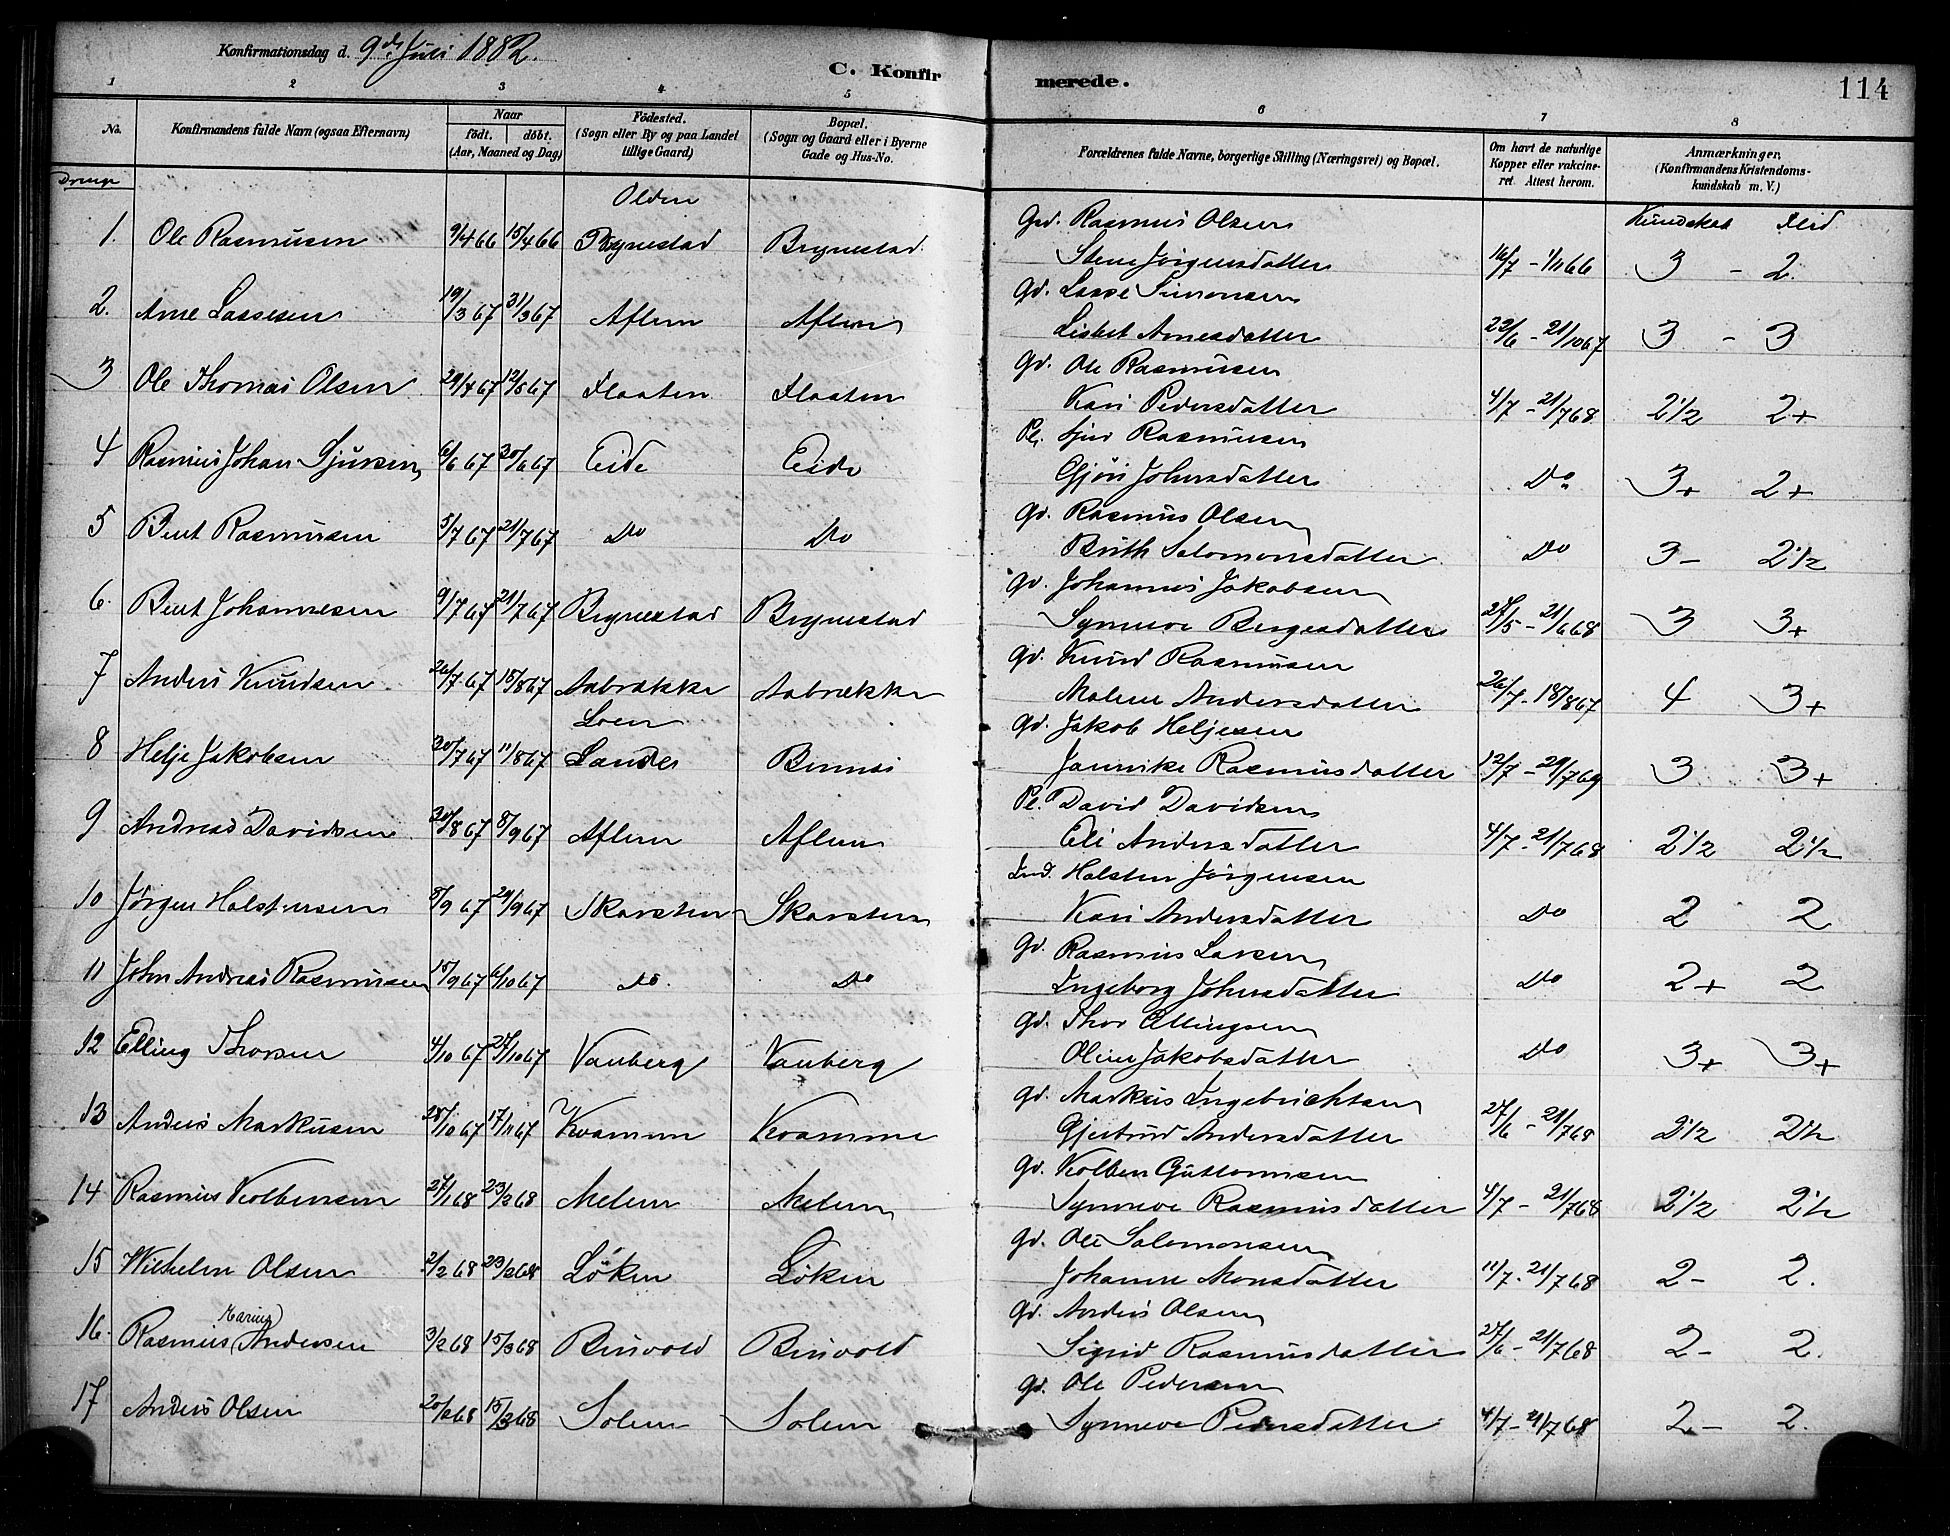 Konfirmationsdag d. 9de Juli 1882.
C. Konfirmerede.
114
1 2 3 4 5 6 7 8
No. Konfirmandens fulde Navn (ogsaa Efternavn) Naar født. døbt. (Aar, Maaned og Dag) Fødested. (Sogn eller By og paa Landet tillige Gaard) Bopæl. (Sogn og Gaard eller i Byerne Gade og Hus-No. Forældrenes fulde Navne, borgerlige Stilling (Næringsvei) og Bopæl. Om havt de naturlige Kopper eller vakcineret. Attest herom. Anmærkninger. (Konfirmandens Kristendomskundskab m. V.)
Drenge
Olden
Kundskab Flid
Grd. Rasmus Olsen
1. Ole Rasmusen 9/4 66 15/4 66 Brynestad Brynestad Stine Jørgensdatter 16/7 - 1/11 66 3 - 2.
Gd. Lasse Simonsen
2. Arne Lassesen 19/3 67 31/3 67 Aflem Aflem Lisbet Arnesdatter 22/6 - 21/10 67 3 - 3
Gd. Ole Rasmusen
3 Ole Thomas Olsen 29/4 67 12/5 67 Flaaten Flaaten Kari Pedersdatter 4/7 - 21/7 68 2 1/2 2+
Pl. Sjur Rasmusen
4 Rasmus Johan Sjursen 6/6 67 20/6 67 Eide Eide Gjøri Johnsdatter Do 3+ 2+
Gd. Rasmus Olsen
5 Bent Rasmusen 5/7 67 21/7 67 Do Do Brith Salomonsdatter Do 3- 2 1/2
Gd. Johannes Jakobsen
6. Bent Johannesen 9/7 67 21/7 67 Brynestad Brynestad Synneve Bergesdatter 28/5 - 21/6 68 3 3+
Gd. Knud Rasmusen
7 Anders Knudsen 26/7 67 18/8 67 Aabrække Aabrække Malene Andersdatter 26/7 - 18/8 67 4 3+
Loen
Gd. Jakob Heljesen
8 Helje Jakobsen 20/7 67 11/8 67 Sandes Bennes Jannike Rasmusdatter 12/7 - 29/7 69 3 3+
Pl. David Davidsen
9 Andreas Davidsen 20/8 67 8/9 67 Aflem Aflem Eli Andersdatter 4/7 - 21/7 68 2 1/2 2 1/2
Ind. Holsten Jørgensen
10 Jørgen Holstensen 8/9 67 29/9 67 Skarsten Skarsten Kari Andersdatter Do 2 2
Gd. Rasmus Larsen
11 John Andreas Rasmusen 15/9 67 6/10 67 Do. Do Ingeborg Johnsdatter Do 2+ 2
Gd. Thor Ellingsen
12 Elling Thorsen 4/10 67 27/10 67 Vanberg Vanberg Oline Jakobsdatter Do 3+ 3+
Gd. Markus Ingebrichtsen
13 Anders Markusen 28/10 67 17/11 67 Kvamme Kvamme Gjertrud Andersdatter 27/6 - 21/7 68 2 1/2 2 1/2
Gd. Kolben Guttormsen
14 Rasmus Kolbensen 27/1 68 23/2 68 Melem Melem Synneve Rasmusdatter 4/7 - 21/7 68 2 1/2 2 1/2
Gd. Ole Salomonsen
15 Wilhelm Olsen 2/2 68 23/2 68 Løken Løken Johanne Monsdatter 11/7 - 21/7 68 2- 2.
Gd. Anders Olsen
16. Rasmus (Marius) Andersen 3/2 68 15/3 68 Brüvold Brüvold Sigrid Rasmusdatter 27/6 - 21/7 68 2- 2.
Gd. Ole Pedersen
17 Anders Olsen 20/2 68 15/3 68 Solem Solem Synneve Pedersdatter 4/7 - 21/7 68 2- 2.